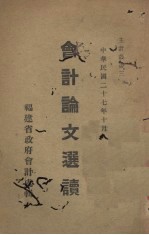 中華民國二十七年十月
會計論文選讀
福建省政府會計